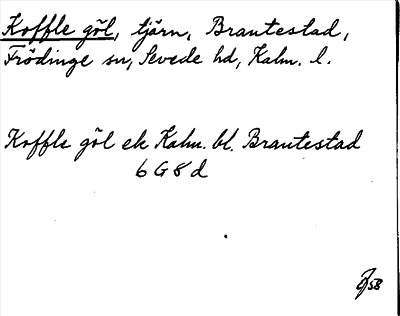 Koffle göl, tjärn, Brantestad,
Frödinge sn, Sevede hd, Kalm. l.
Koffle göl ek Kalm. bl. Brantestad
6 G 8 d
58